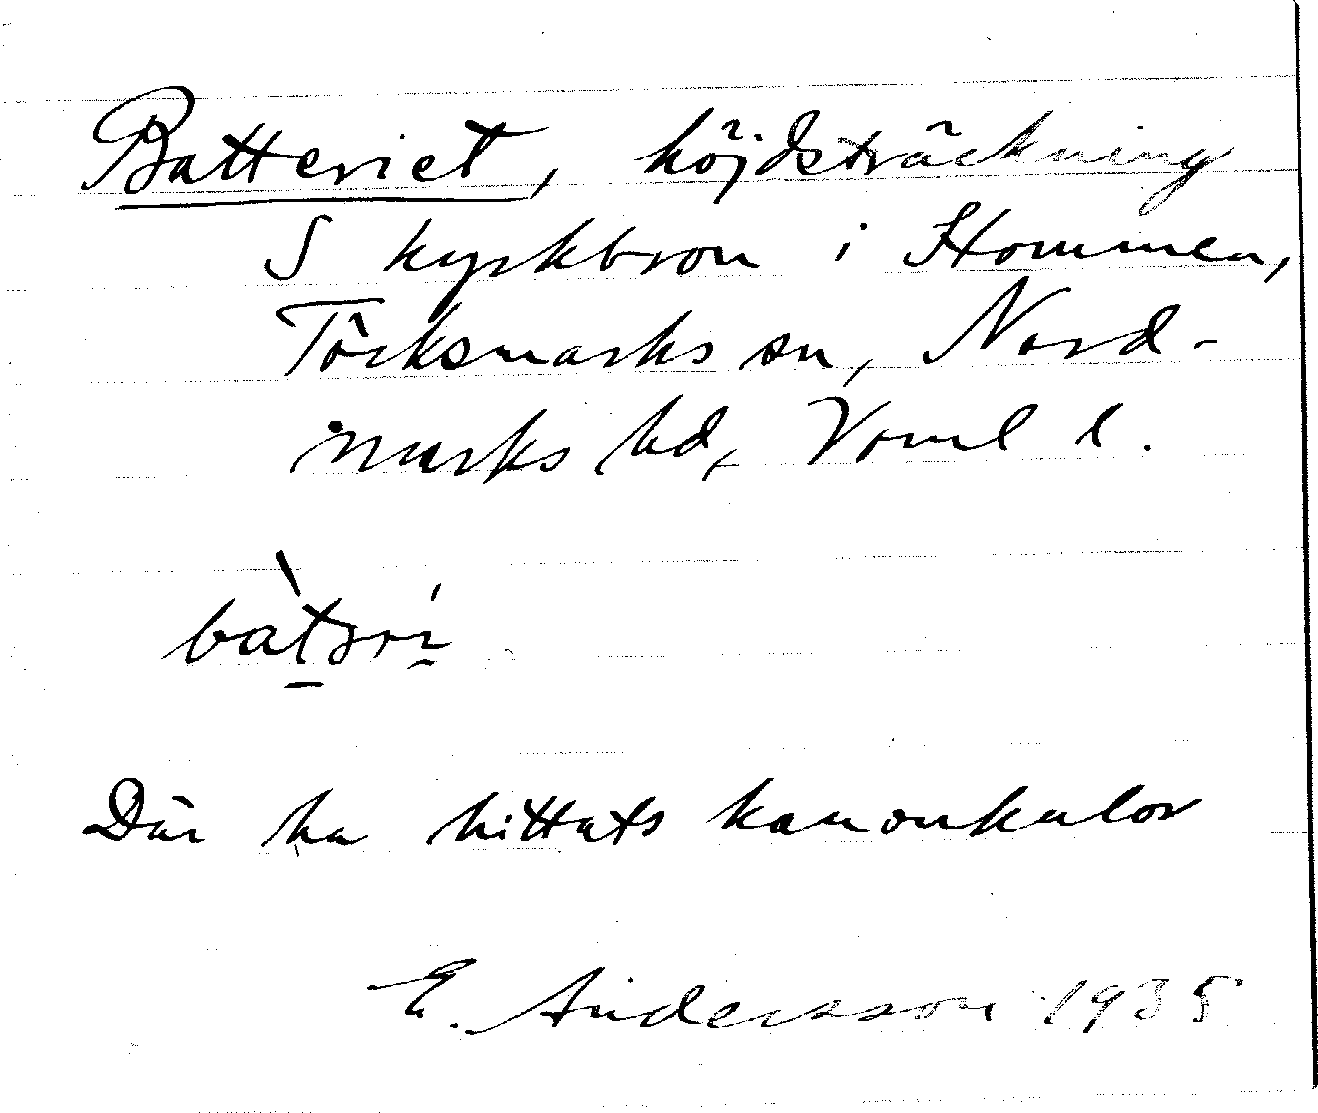 Batteriet, höjdsträckning
S kyrkbron i Hommen,
Töcksmarks sn, Nord-
marks hd, Värml l.
Där ha hittats kanonkulor
E. Andersson 1935